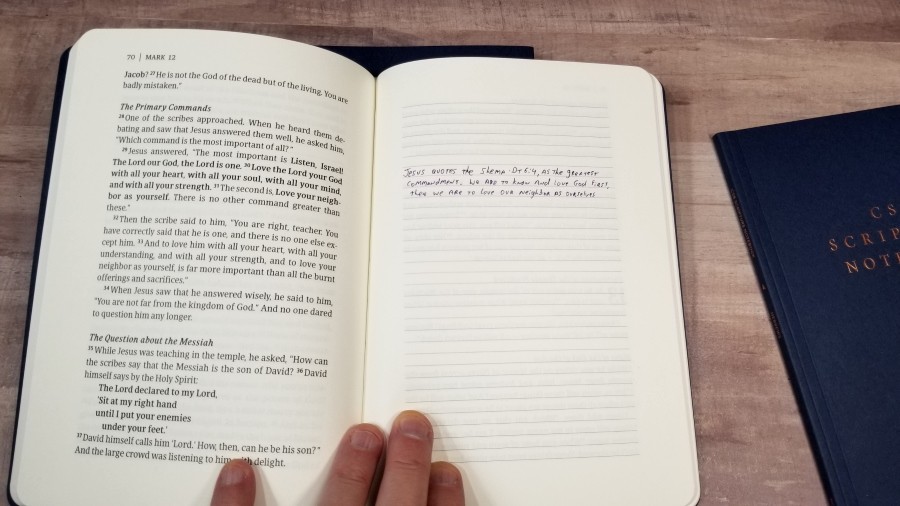 70 | MARK 12
Jacob? 27 He is not the God of the dead but of the living. You are
badly mistaken."
The Primary Commands
28 One of the scribes approached. When he heard them de-
bating and saw that Jesus answered them well, he asked him,
"Which command is the most important of all?"
29 Jesus answered, "The most important is Listen, Israel!
The Lord our God, the Lord is one. 30 Love the Lord your God
with all your heart, with all your soul, with all your mind,
and with all your strength. 31 The second is, Love your neigh-
bor as yourself. There is no other command greater than
these."
32 Then the scribe said to him, "You are right, teacher. You
have correctly said that he is one, and there is no one else ex-
cept him. 33 And to love him with all your heart, with all your
understanding, and with all your strength, and to love your
neighbor as yourself, is far more important than all the burnt
offerings and sacrifices."
34 When Jesus saw that he answered wisely, he said to him,
"You are not far from the kingdom of God." And no one dared
to question him any longer.
The Question about the Messiah
35 While Jesus was teaching in the temple, he asked, "How can
the scribes say that the Messiah is the son of David? 36 David
himself says by the Holy Spirit:
The Lord declared to my Lord,
'Sit at my right hand
until I put your enemies
under your feet.'
37 David himself calls him 'Lord.' How, then, can he be his son?"
And the large crowd was listening to him with delight.
Jesus quotes the Shema Dt 6:4, as the greatest
commandment. We are to know and love God first,
then we are to love our neighbor as ourselves
CS
SCRIP
NOT